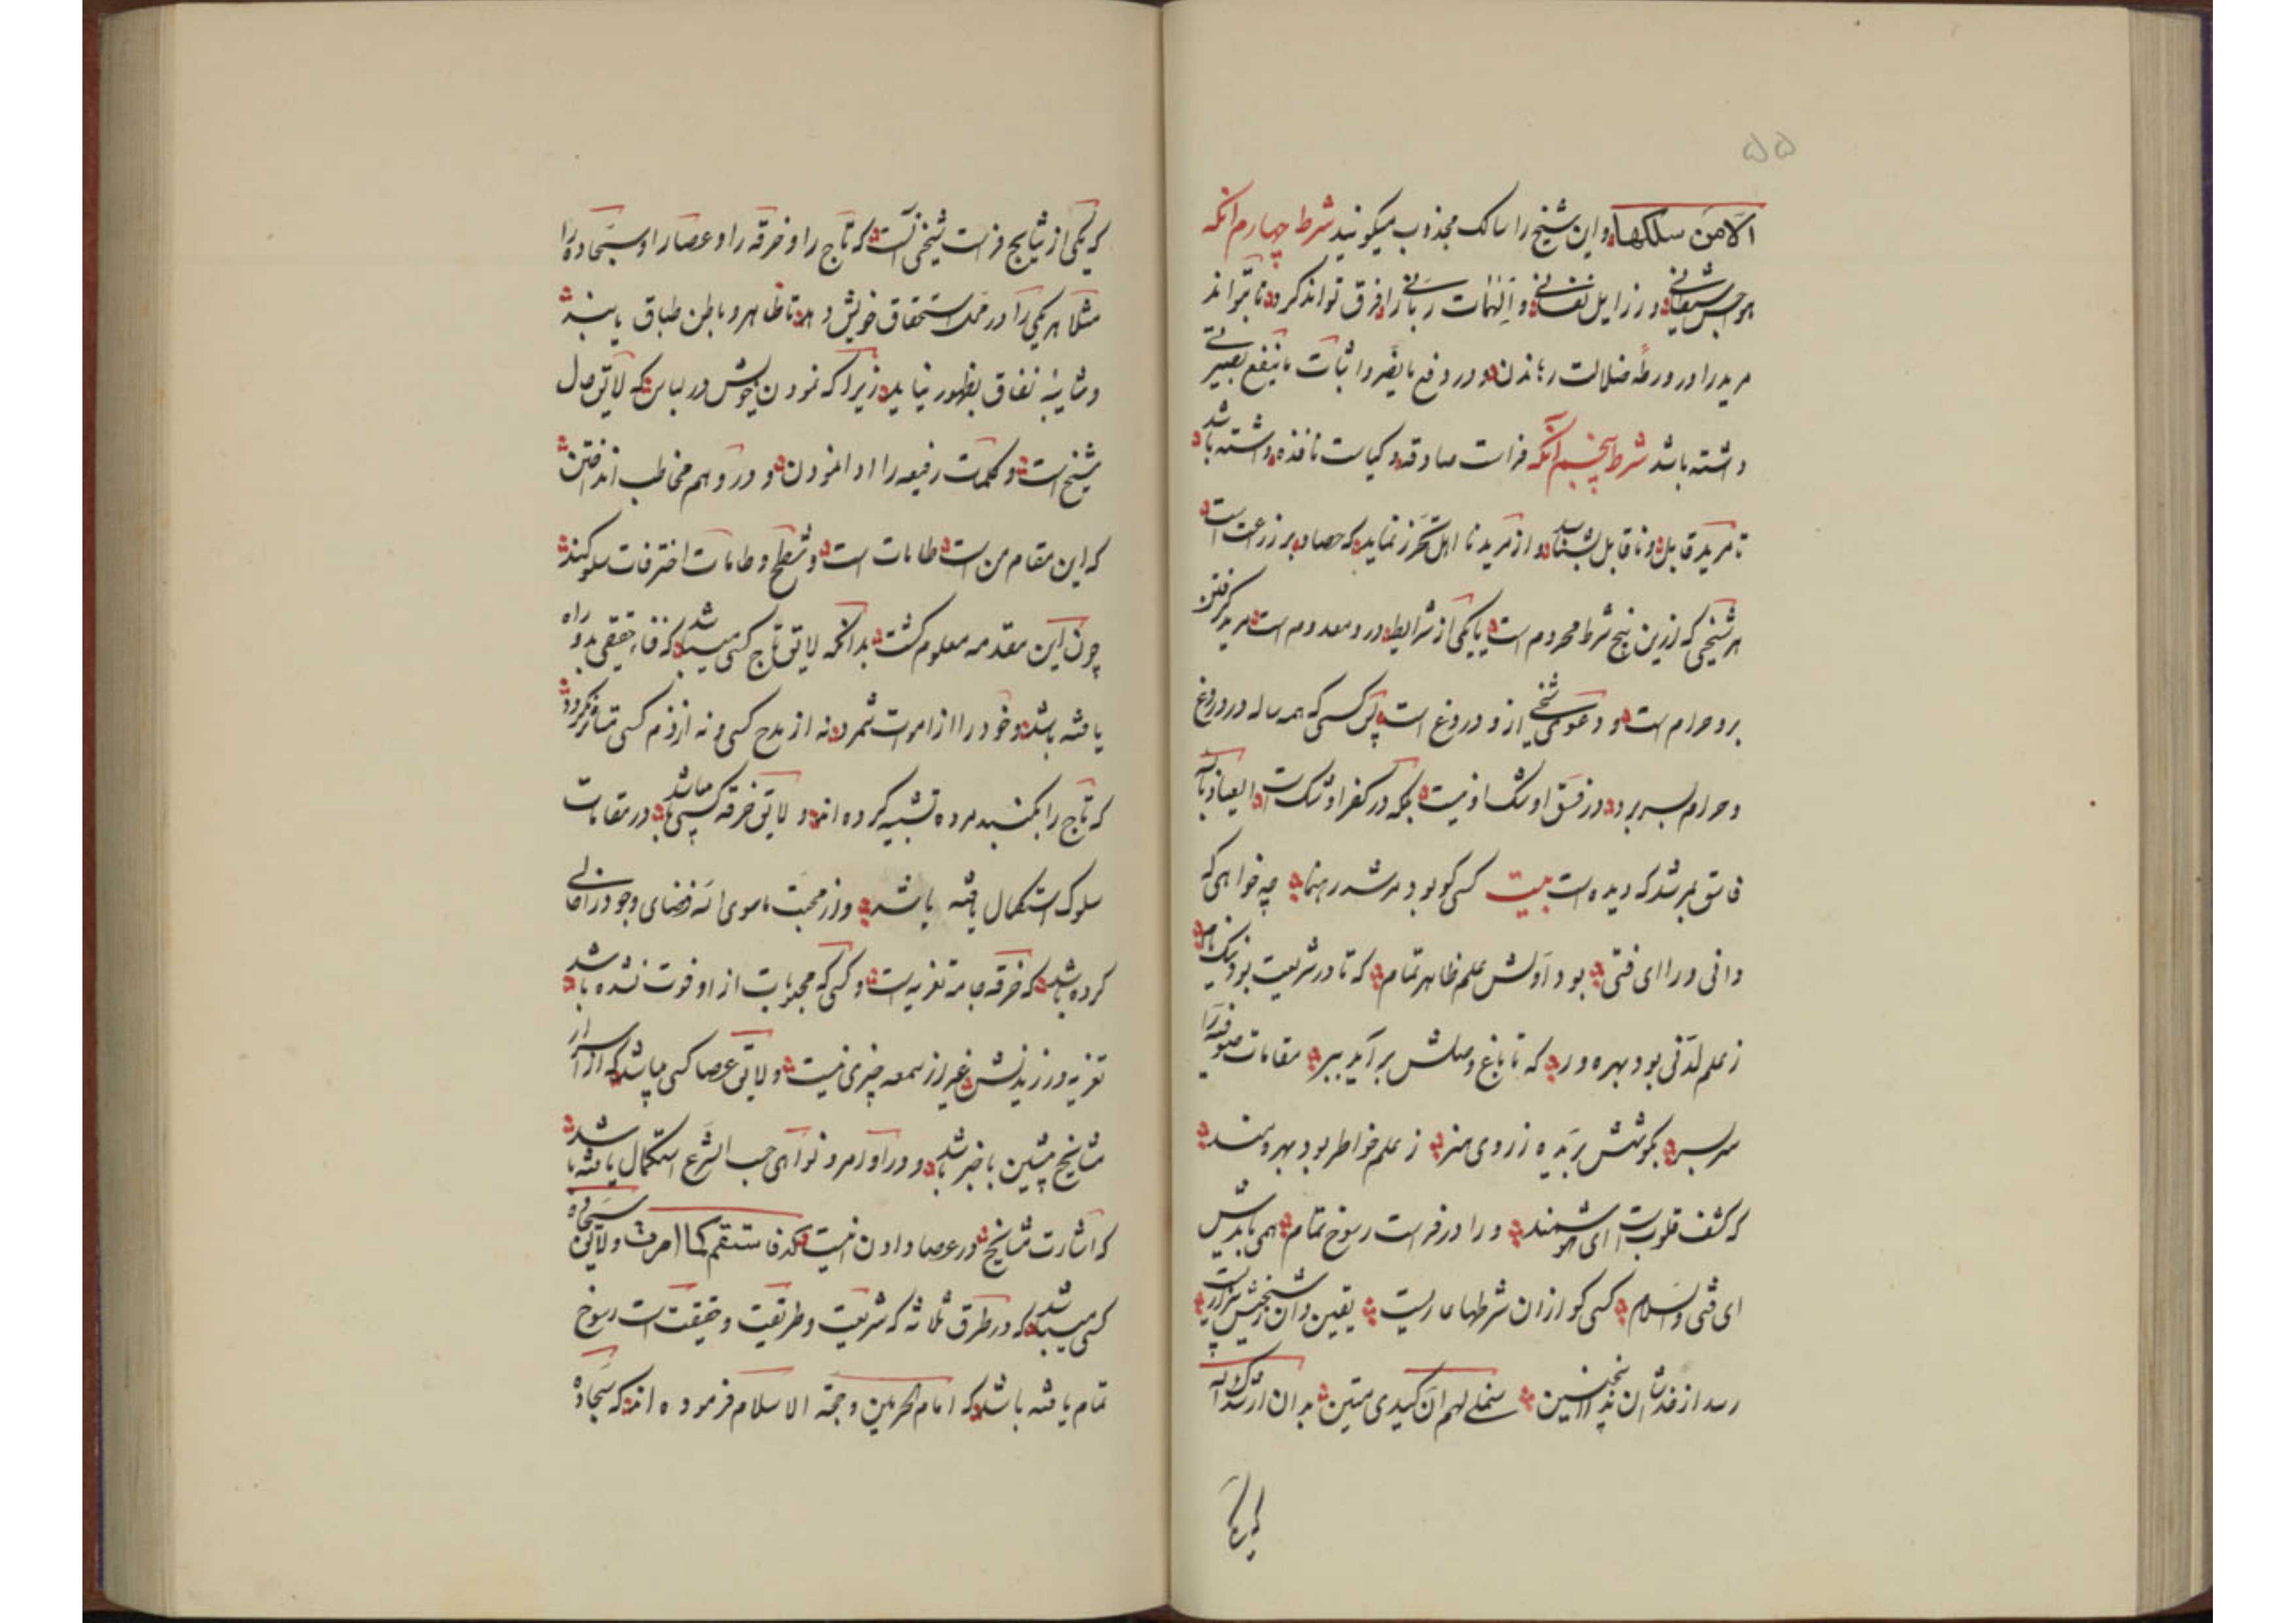 ۵۵
الا من سلکها و این شیخ را سالک مجذوب میکویند شرط چهارم آنکه
هواجس شیطانی و رزایل نفسانی و الهامات ربانی را فرق تواند کرد تا نتواند
مرید را در ورطه ضلالت راندن و در دفع ما یضر و اثبات ما ینفع تبصیری
داشته باشد شرط پنجم آنکه فراست صادقه و کیاست نافذه داشته باشد
تا مرید قابل و ناقابل بشناسد و از مرید نا اهل تحرز نماید که حصاد بر زرعت است
هر شیخی که ازین پنج شرط محروم است یا یکی از شرایط درو معدوم است مرید کرفتن
برو حرام است و دعوی شیخی ازو دروغ است پس کسی که همه ساله در دروغ
و حرام بسر برد در فسق او شک او نیست بلکه در کفر او شک است العیاذ بالله
فاسق مرشد که دیده است بیت کسی کو بود مرشد رهنما چه خواهی که
دانی ورا ای فتی بود اولش علم ظاهر تمام که تا در شریعت بود نیک نام
ز علم لدنی بود بهره ور که تا باغ وصلش برآید ببر مقامات صوفیه را
سربسر بکوشش بدیده ز روی هنر ز علم خواطر بود بهره مند
که کشف قلوبست ای هوشمند ورا در فراست رسوخ تمام همی بایدش
ای فتی والسلام کسی کو ازان شرطها عاریست یقین دان شیخیش
رسد از خدا سنملی لهم ان کیدی متین بدان ارشدک الله
که یکی
که یکی از نتایج فراست شیخی آنست که تاج را و خرقه را و عصا را و سجاده را
مثلا هر یکی را در محل استحقاق خویش دهد تا ظاهر و باطن طباق یابند
و شایبه نفاق بظهور نیاید زیرا که نمودن خویش در لباس که لایق حال
شیخ است و کلمات رفیعه را ادا نمودن و در وهم مخاطب انداختن
که این مقام من است طامات است و شطح و طامات اختر فات سلوکند
چون این مقدمه معلوم کشت بدانکه لایق تاج کسی میباشد که فناء حقیقی بدو راه
یافته باشد و خود را از اموات شمرد نه از مدح کسی و نه از ذم کسی متاثر نکردد
که تاج را بکنبد مرده تشبیه کرده اند و لایق خرقه کسی میباشد در مقامات
سلوک استکمال یافته باشد و از محبت ماسوی الله فضای وجود را خالی
کرده باشد که خرقه جامه تعزیه است و کسی که محبوبات از او فوت نشده باشد
تعزیه ورزیدنش غیر از سمعه چیزی نیست و لایق عصا کسی میباشد که از اسرار
مشایخ پیشین با خبر باشد و در اوامر و نواهی حسب الشرع استکمال یافته باشد
که اشارت مشایخ در عصا دادن اینست که فاستقم کما امرت و لایق سجاده
کسی میباشد که در طرق ثلاثه که شریعت و طریقت و حقیقت است رسوخ
تمام یافته باشد که امام الحرمین و حجة الاسلام فرموده اند که سجاده